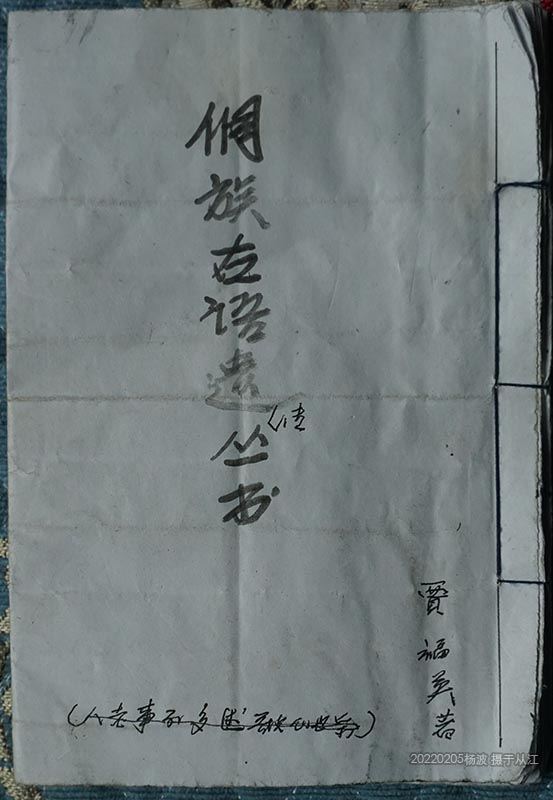 侗族古语遗丛书
賈福英著
(人老事不多
20220205杨波 摄于从江